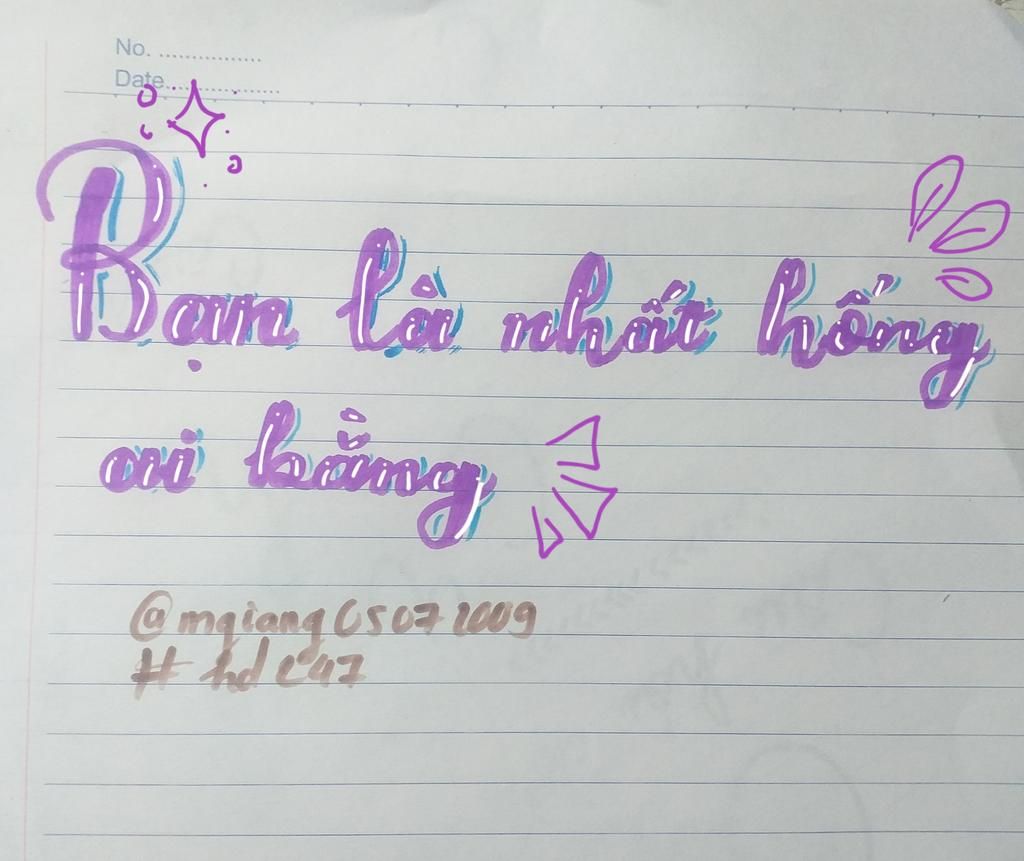 No. ................
Date....................
Bạn là nhất hống
ai bằng
@mgiang05072009
# hd 247